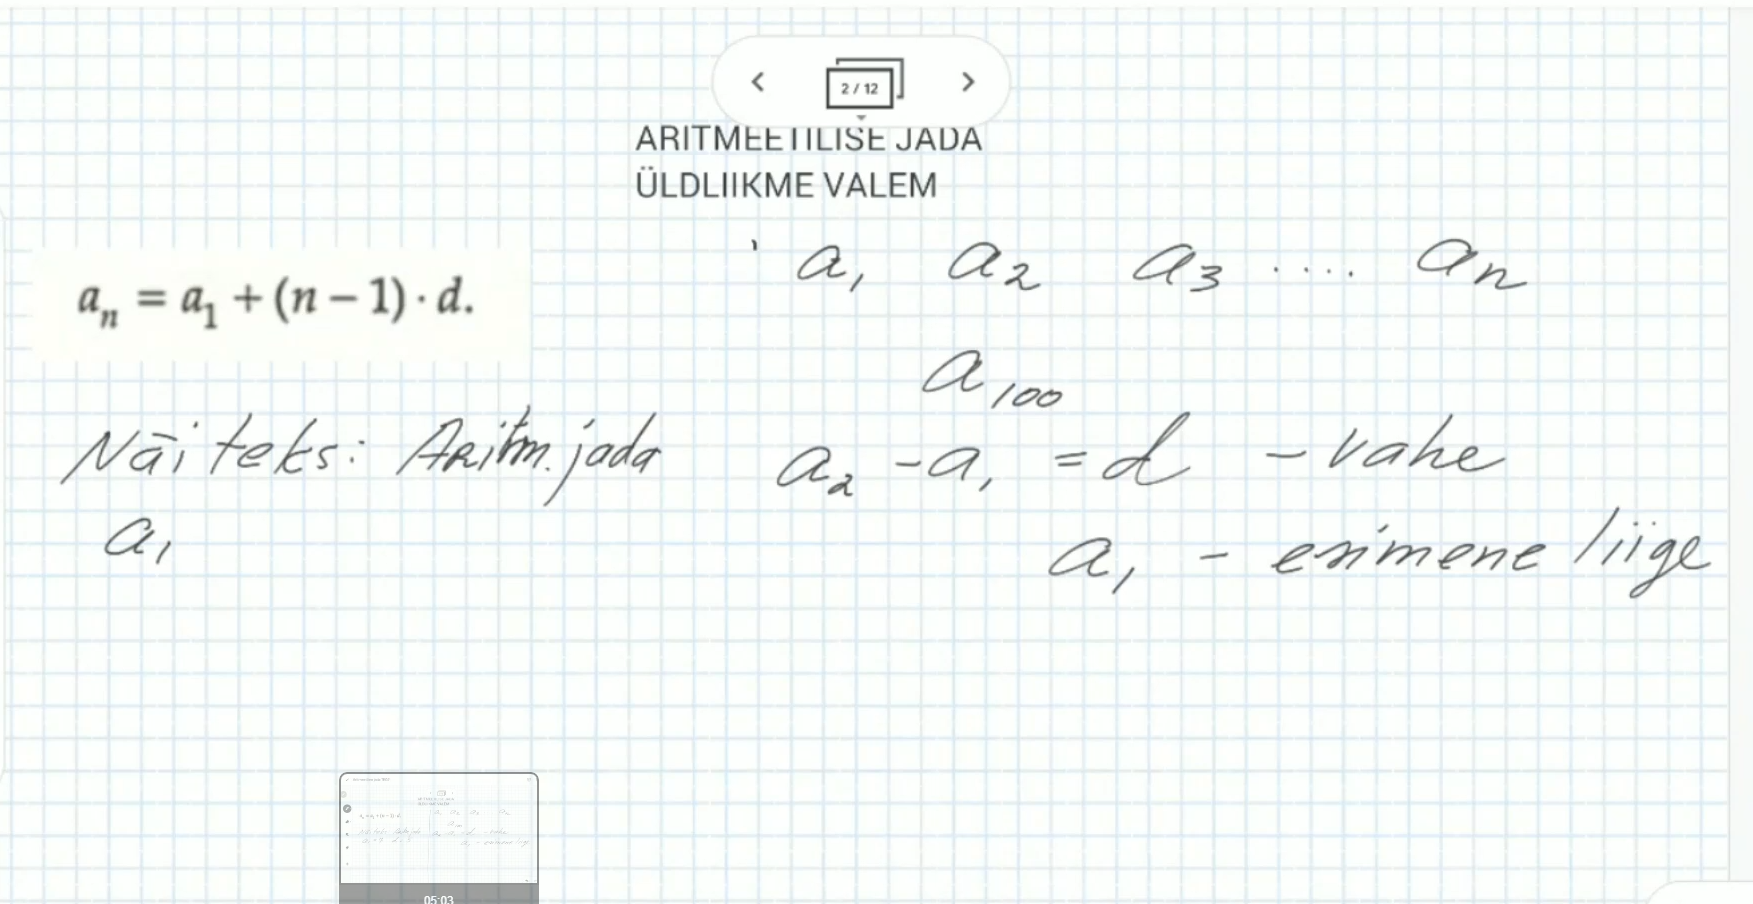 2 / 12
ARITMEETILISE JADA
ÜLDLIIKME VALEM
aₙ = a₁ + (n − 1) · d.
a₁ a₂ a₃ .... aₙ
a₁₀₀
Näiteks: Aritm. jada
a₂ - a₁ = d - vahe
a₁
a₁ - esimene liige
05:03